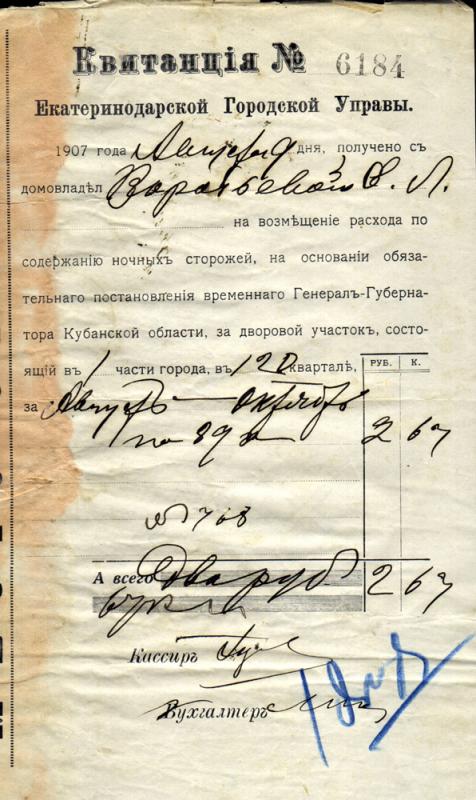 Квитанція № 6184
Екатеринодарской Городской Управы.
1907 года Августа 9 дня, получено съ
домовладѣл Воробьевой С. Л.
на возмѣщеніе расхода по
содержанію ночныхъ сторожей, на основаніи обяза-
тельнаго постановленія временнаго Генералъ-Губерна-
тора Кубанской области, за дворовой участокъ, состо-
ящій въ 1 части города, въ 120 кварталѣ,
РУБ. К.
за Августъ - октябрь
по 89 к 2 67
№ 768
А всего Два руб 2 67
Кассиръ
Бухгалтеръ